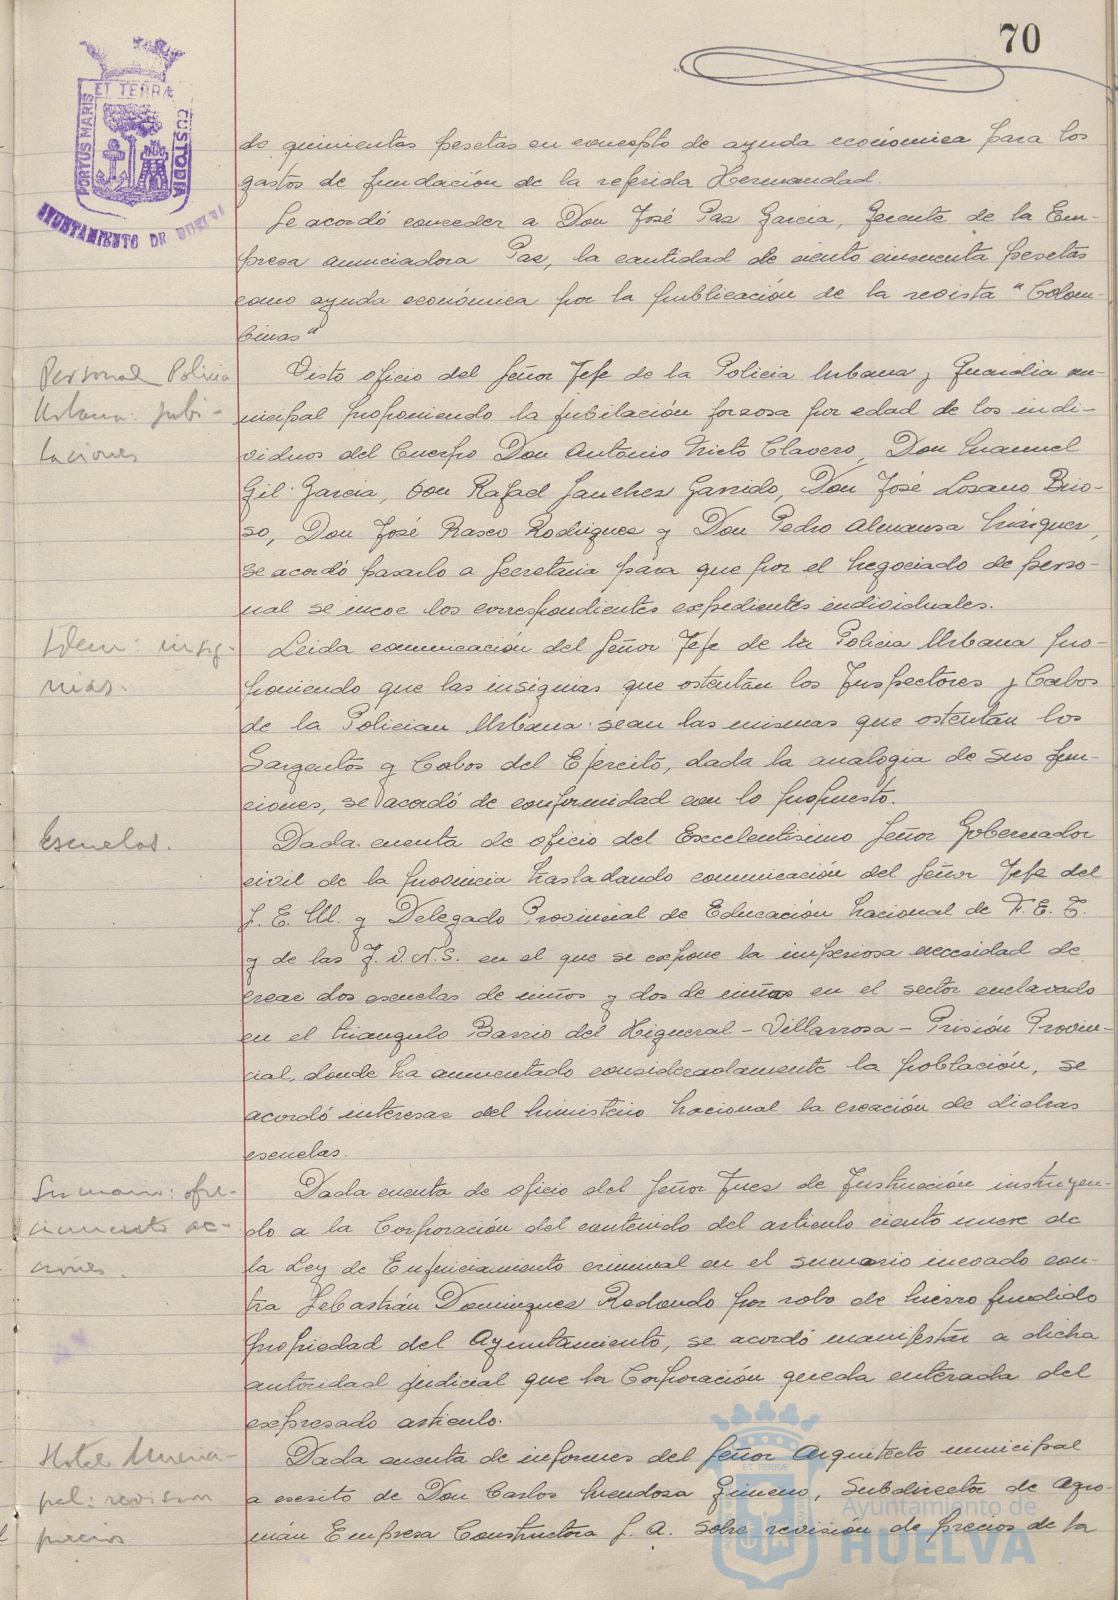 70
PORTUS MARIS
ET TERRÆ
CUSTODIA
AYUNTAMIENTO DE HUELVA
de quinientas pesetas en concepto de ayuda económica para los
gastos de fundación de la referida Hermandad.
Se acordó conceder a Don José Paz Garcia, Gerente de la Em-
presa anunciadora Paz, la cantidad de ciento cincuenta pesetas
como ayuda económica por la publicación de la revista "Colom-
binas"
Personal Policia
Urbana: Jubi-
laciones
Visto oficio del Señor Jefe de la Policia Urbana y Guardia mu-
nicipal proponiendo la jubilación forzosa por edad de los indi-
viduos del Cuerpo Don Antonio Nieto Clavero, Don Manuel
Gil Garcia, Don Rafael Sanchez Garrido, Don José Losano Brio-
so, Don José Rasco Rodriguez y Don Pedro Almansa Márquez,
se acordó pasarlo a Secretaria para que por el Negociado de perso-
nal se incoe los correspondientes expedientes individuales.
Idem: insig-
nias.
Leida comunicación del Señor Jefe de la Policia Urbana pro-
poniendo que las insignias que ostentan los Inspectores y Cabos
de la Polician Urbana sean las mismas que ostentan los
Sargentos y Cabos del Ejercito, dada la analogia de sus fun-
ciones, se acordó de conformidad con lo propuesto.
Escuelas.
Dada cuenta de oficio del Excelentisimo Señor Gobernador
civil de la provincia trasladando comunicación del Señor Jefe del
S. E. M. y Delegado Provincial de Educación Nacional de F. E. T.
y de las J.O.N.S. en el que se expone la imperiosa necesidad de
crear dos escuelas de niños y dos de niñas en el sector enclavado
en el triangulo Barrio del Higueral - Villarrosa - Prisión Provin-
cial, donde ha aumentado consideradamente la población, se
acordó interesar del Ministerio Nacional la creación de dichas
escuelas.
Sumario: ofre-
cimiento ac-
ciones.
Dada cuenta de oficio del Señor Juez de Instrucción instruyen-
do a la Corporación del contenido del articulo ciento nueve de
la Ley de Enjuiciamiento criminal en el sumario incoado con-
tra Sebastián Dominguez Redondo por robo de hierro fundido
propiedad del Ayuntamiento, se acordó manifestar a dicha
autoridad judicial que la Corporación queda enterada del
expresado articulo.
Hotel Munici-
pal: revision
precios
Dada cuenta de informes del Señor Arquitecto municipal
a escrito de Don Carlos Mendoza Gimeno, Subdirector de Agro-
mán Empresa Constructora S. A. sobre revisión de precios de la
Ayuntamiento de
HUELVA